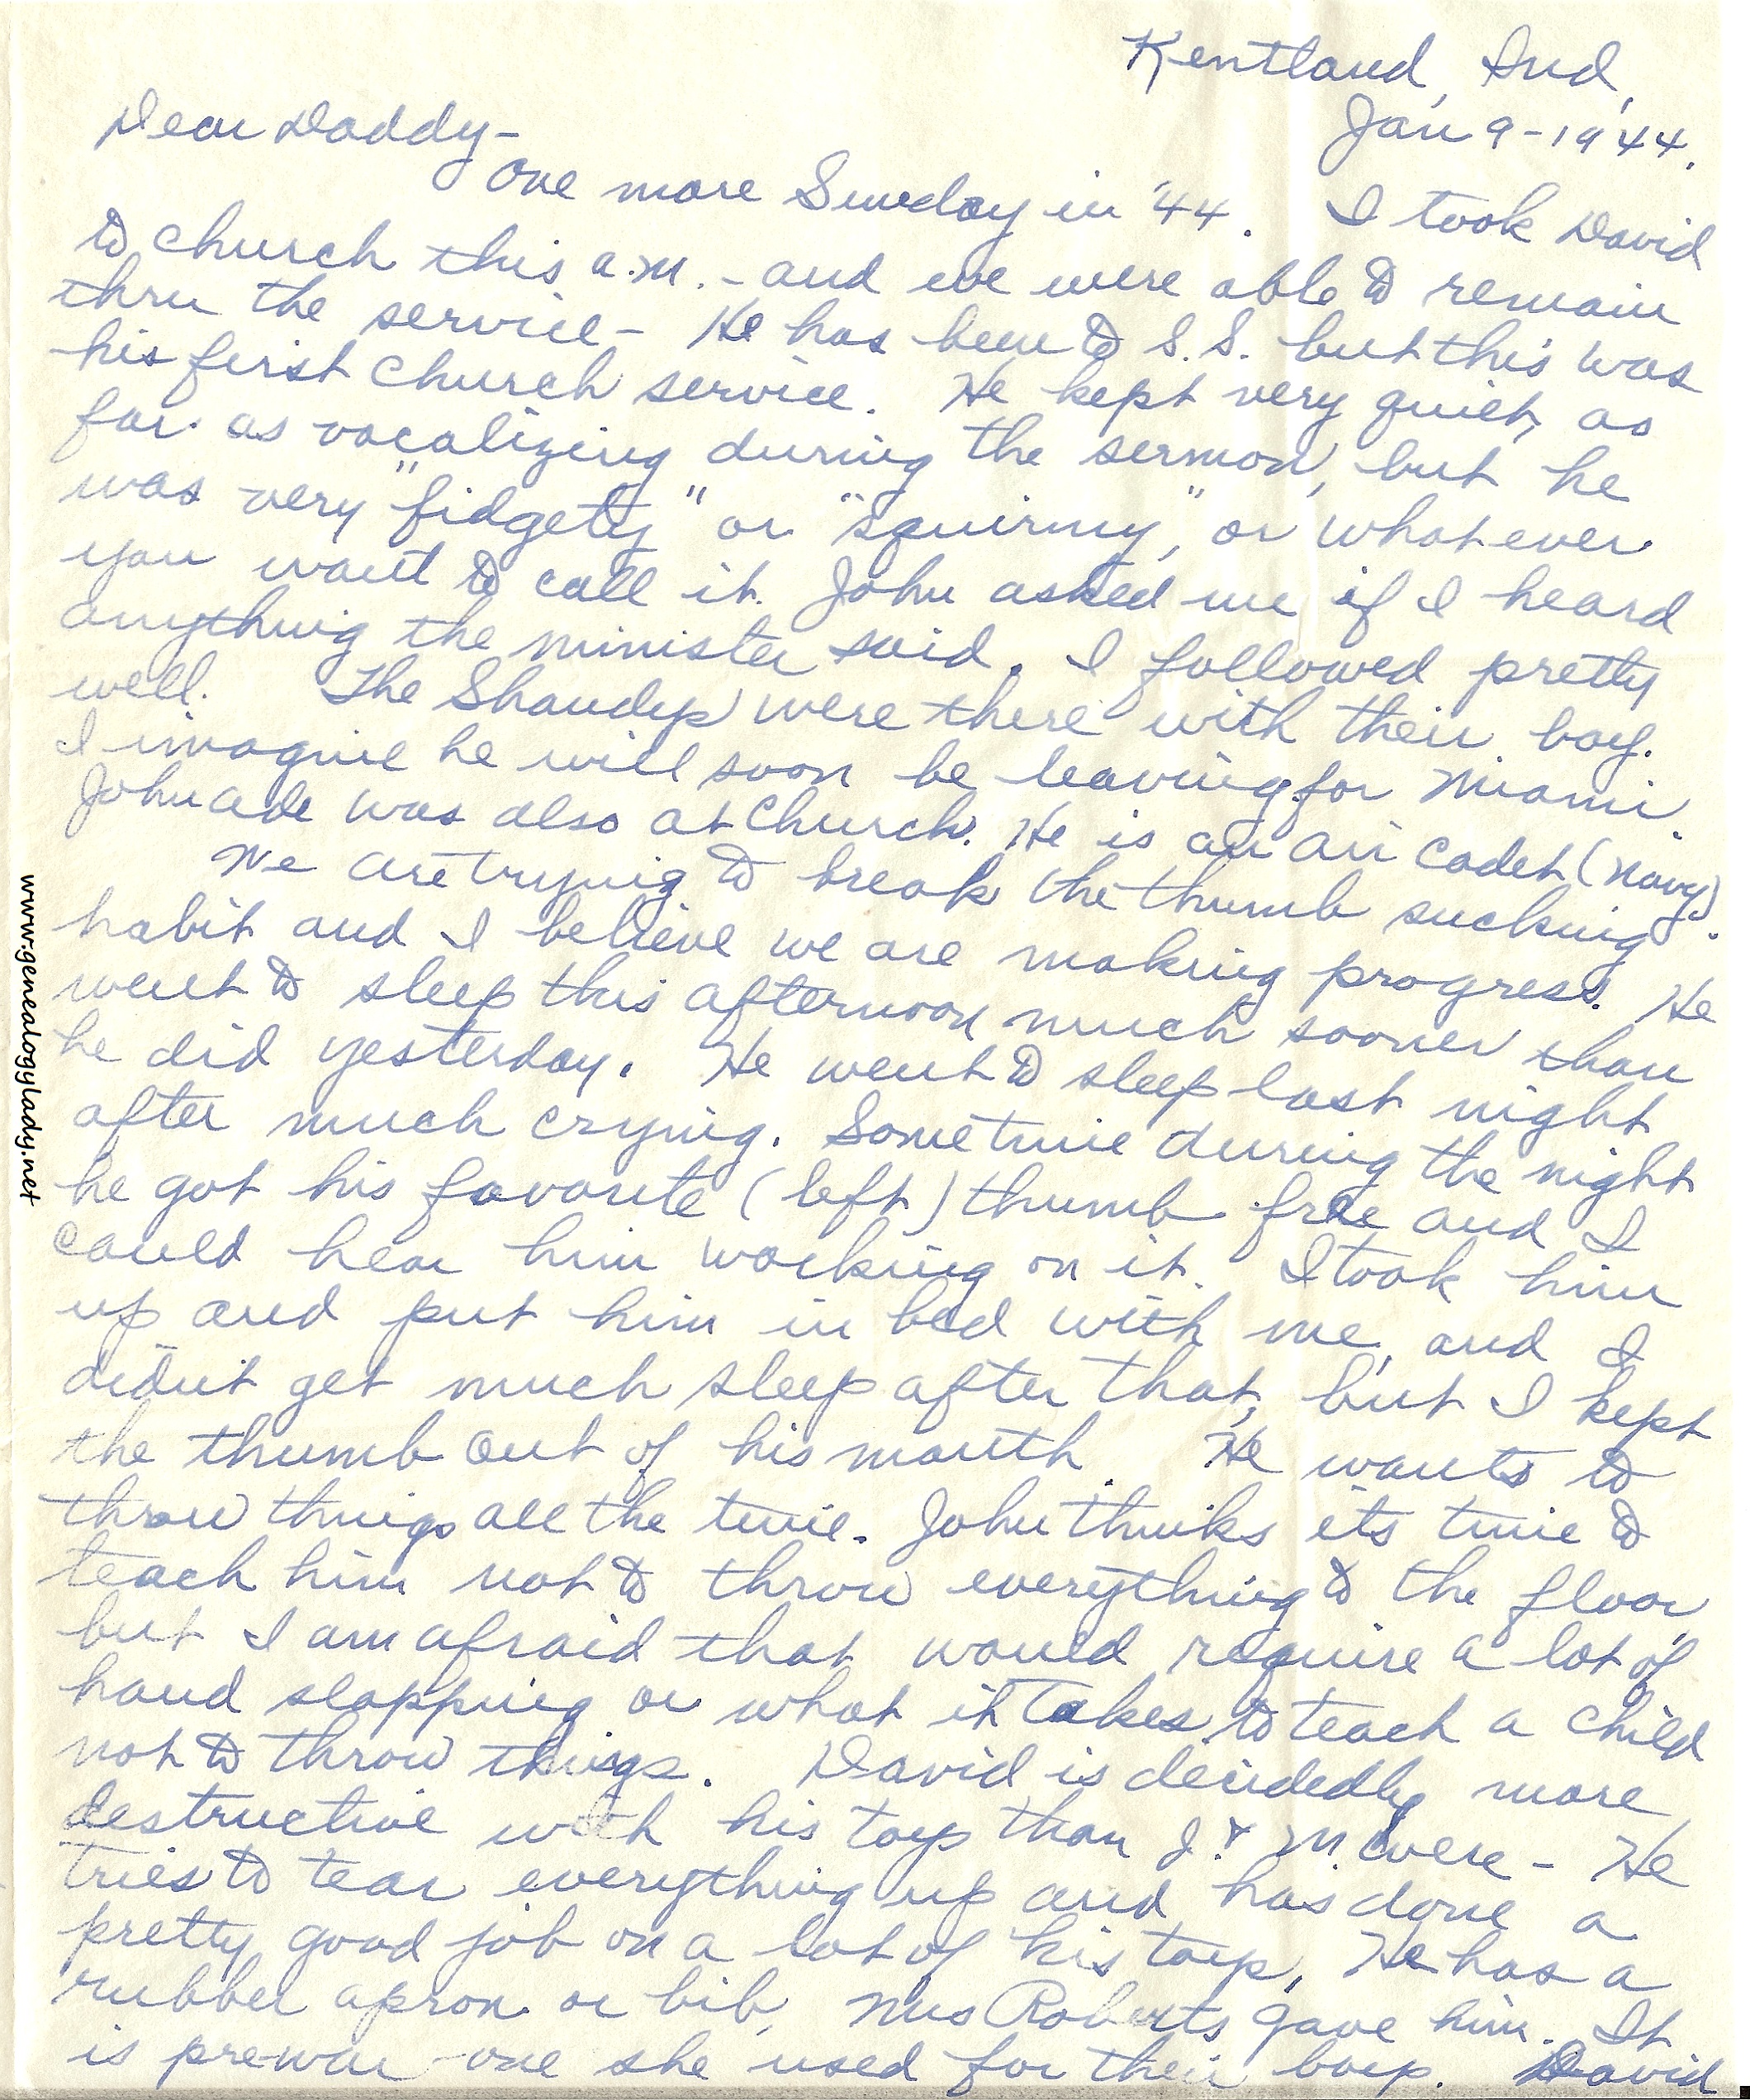 Kentland, Ind,
Jan 9-1944.
Dear Daddy-
One more Sunday in '44. I took David
to church this a.m. - and we were able to remain
thru the service - He has been to S.S. but this was
his first church service. He kept very quiet, as
far as vocalizing during the sermon, but he
was very "fidgety" or "squirmy", or whatever
you want to call it. John asked me if I heard
anything the minister said. I followed pretty
well. The Shandys were there with their boy.
I imagine he will soon be leaving for Miami.
John Ade was also at church. He is an air cadet (Navy).
We are trying to break the thumb sucking
habit and I believe we are making progress. He
went to sleep this afternoon much sooner than
he did yesterday. He went to sleep last night
after much crying. Sometime during the night
he got his favorite (left) thumb free and I
could hear him working on it. I took him
up and put him in bed with me, and I
didn't get much sleep after that, but I kept
the thumb out of his mouth. He wants to
throw things all the time. John thinks its time to
teach him not to throw everything to the floor,
but I am afraid that would require a lot of
hand slapping or what it takes to teach a child
not to throw things. David is decidedly more
destructive with his toys than J. & M. were - He
tries to tear everything up and has done a
pretty good job on a lot of his toys. He has a
rubber apron or bib, Mrs Roberts gave him. It
is prewar - one she used for their boys. David
www.genealogylady.net